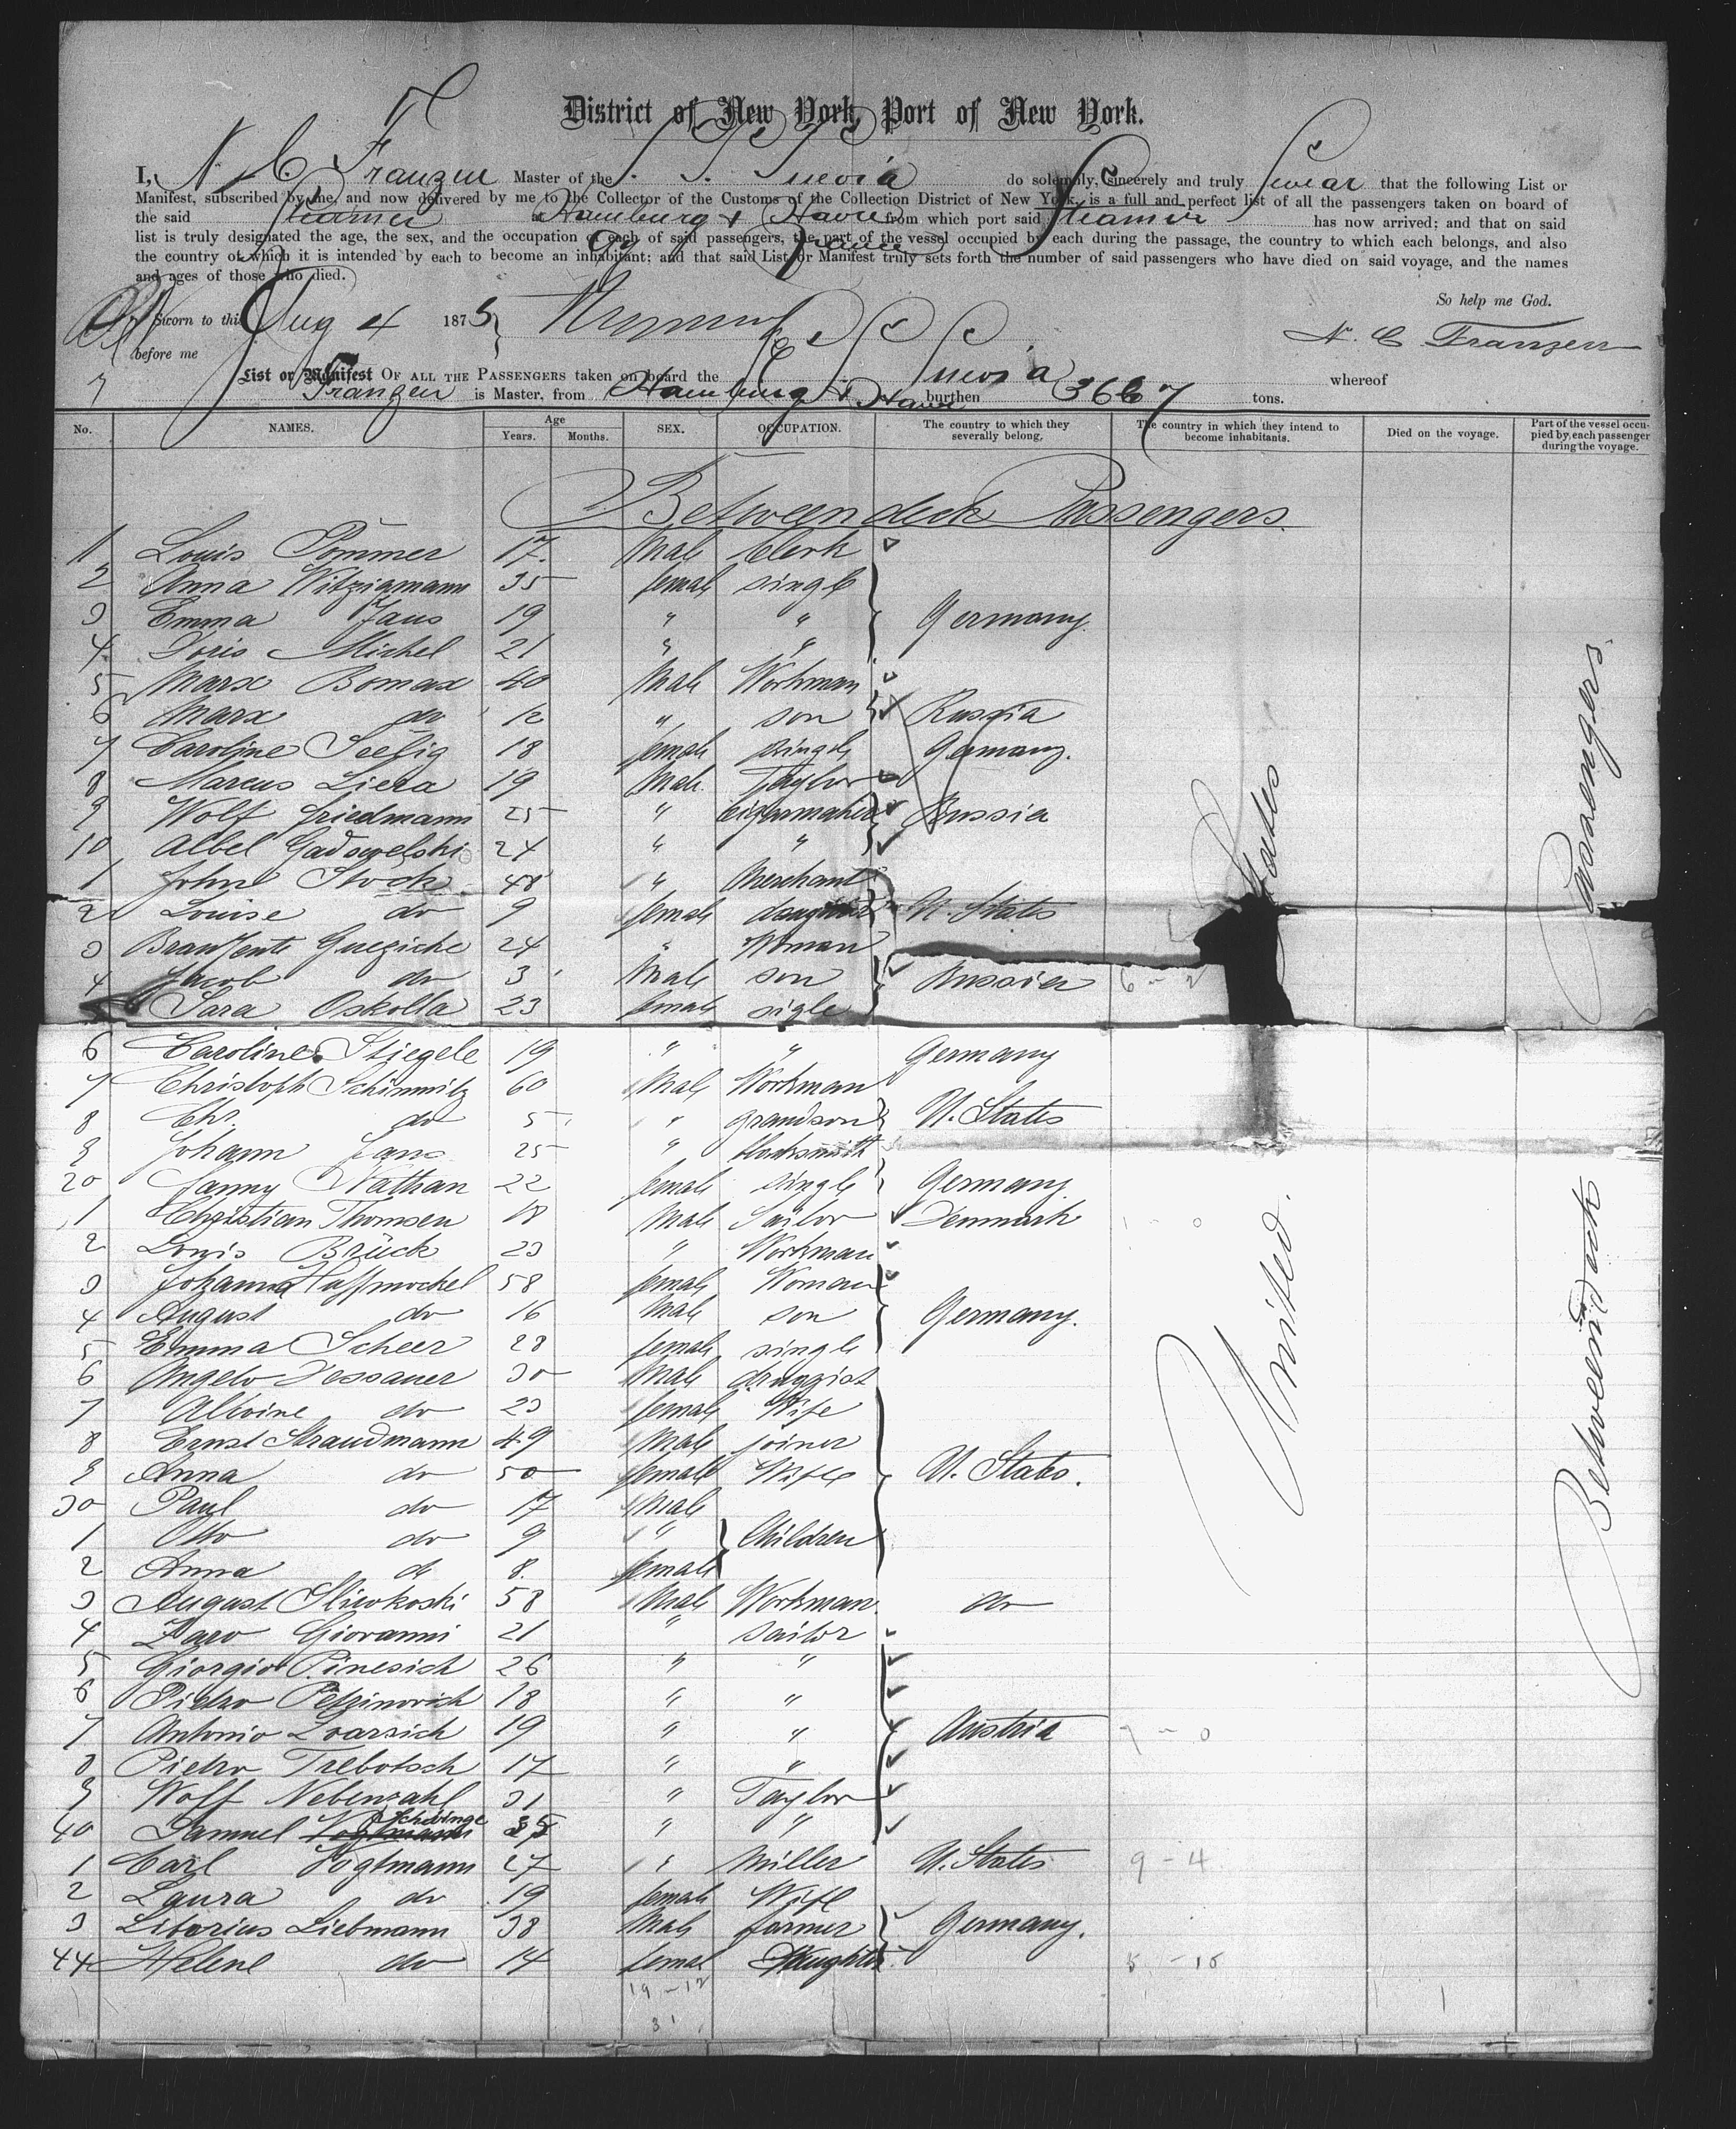 District of New York, Port of New York.
I, N. C. Franzen Master of the S. S. Suevia do solemnly, sincerely and truly Swear that the following List or
Manifest, subscribed by me, and now delivered by me to the Collector of the Customs of the Collection District of New York, is a full and perfect list of all the passengers taken on board of
the said Steamer at Hamburg & Havre from which port said Steamer has now arrived; and that on said
list is truly designated the age, the sex, and the occupation of each of said passengers, the part of the vessel occupied by each during the passage, the country to which each belongs, and also
the country of which it is intended by each to become an inhabitant; and that said List or Manifest truly sets forth the number of said passengers who have died on said voyage, and the names
and ages of those who died.
So help me God.
Sworn to this Aug 4 1875
N. C. Franzen
before me
List or Manifest OF ALL THE PASSENGERS taken on board the S. S. Suevia whereof
Franzen is Master, from Hamburg & Havre burthen 3667 tons.
No. NAMES. Age Years. Months. SEX. OCCUPATION. The country to which they severally belong. The country in which they intend to become inhabitants. Died on the voyage. Part of the vessel occupied by each passenger during the voyage.
Between deck Passengers.
1 Louis Pommer 17 Male Clerk
2 Anna Witzigmann 35 female single
3 Emma Jaus 19 " " Germany.
4 Doris Michel 21 " "
5 Marx Bomax 40 Male Workman
6 Marx do " son Russia
7 Caroline Seelig 18 female single Germany.
8 Marcus Liera 19 Male Taylor
9 Wolf Friedmann 25 " Cigarmaker Russia
10 Albel Gadowelski 24 " "
1 John Stock 48 " Merchant
2 Louise do 9 female daughter U. States
3 Guezicke 24 " Woman
4 Jacob do 3 Male son Russia 6 - 2
5 Sara Oskolla 23 female sigle
6 Caroline Stiegele 19 " " Germany
7 Christoph Schimmitz 60 Male Workman
8 Chr. do 5 " grandson U. States
9 Johann Jans 25 " blacksmith
20 Fanny Nathan 22 female single Germany
1 Christian Thomsen 18 Male Sailor Denmark 1 - 0
2 Louis Brück 23 " Workman
3 Johanna 58 female Woman
4 August do 16 Male son Germany.
5 Emma Scheer 28 female single
6 Angelo Dessauer 30 Male druggist
7 Alwine do 23 female Wife
8 Ernst Strandmann 49 Male joiner
9 Anna do 50 female Wife U. States.
30 Paul do 17 Male
1 Otto do 9 " Children
2 Anna d 8. female
3 August Sliwkoski 58 Male Workman. do
4 Zaro Giovanni 21 " sailor
5 Giorgio Pinesich 26 " "
6 Pietro Petrinovich 18 " "
7 Antonio Zvarsich 19 " " Austria 7 - 0
8 Pietro Trebotsch 17 " "
9 Wolf Nebenzahl 31 " Taylor
40 Samuel Schöinge " "
1 Carl Vogtmann 27 " Miller U. States 9 - 4
2 Laura do 19 female Wife
3 Liborius Liebmann 38 Male farmer Germany.
44 Helene do 14 femal Daughter 5 - 15
19 - 12
31
United States
Betweendeck Passengers.